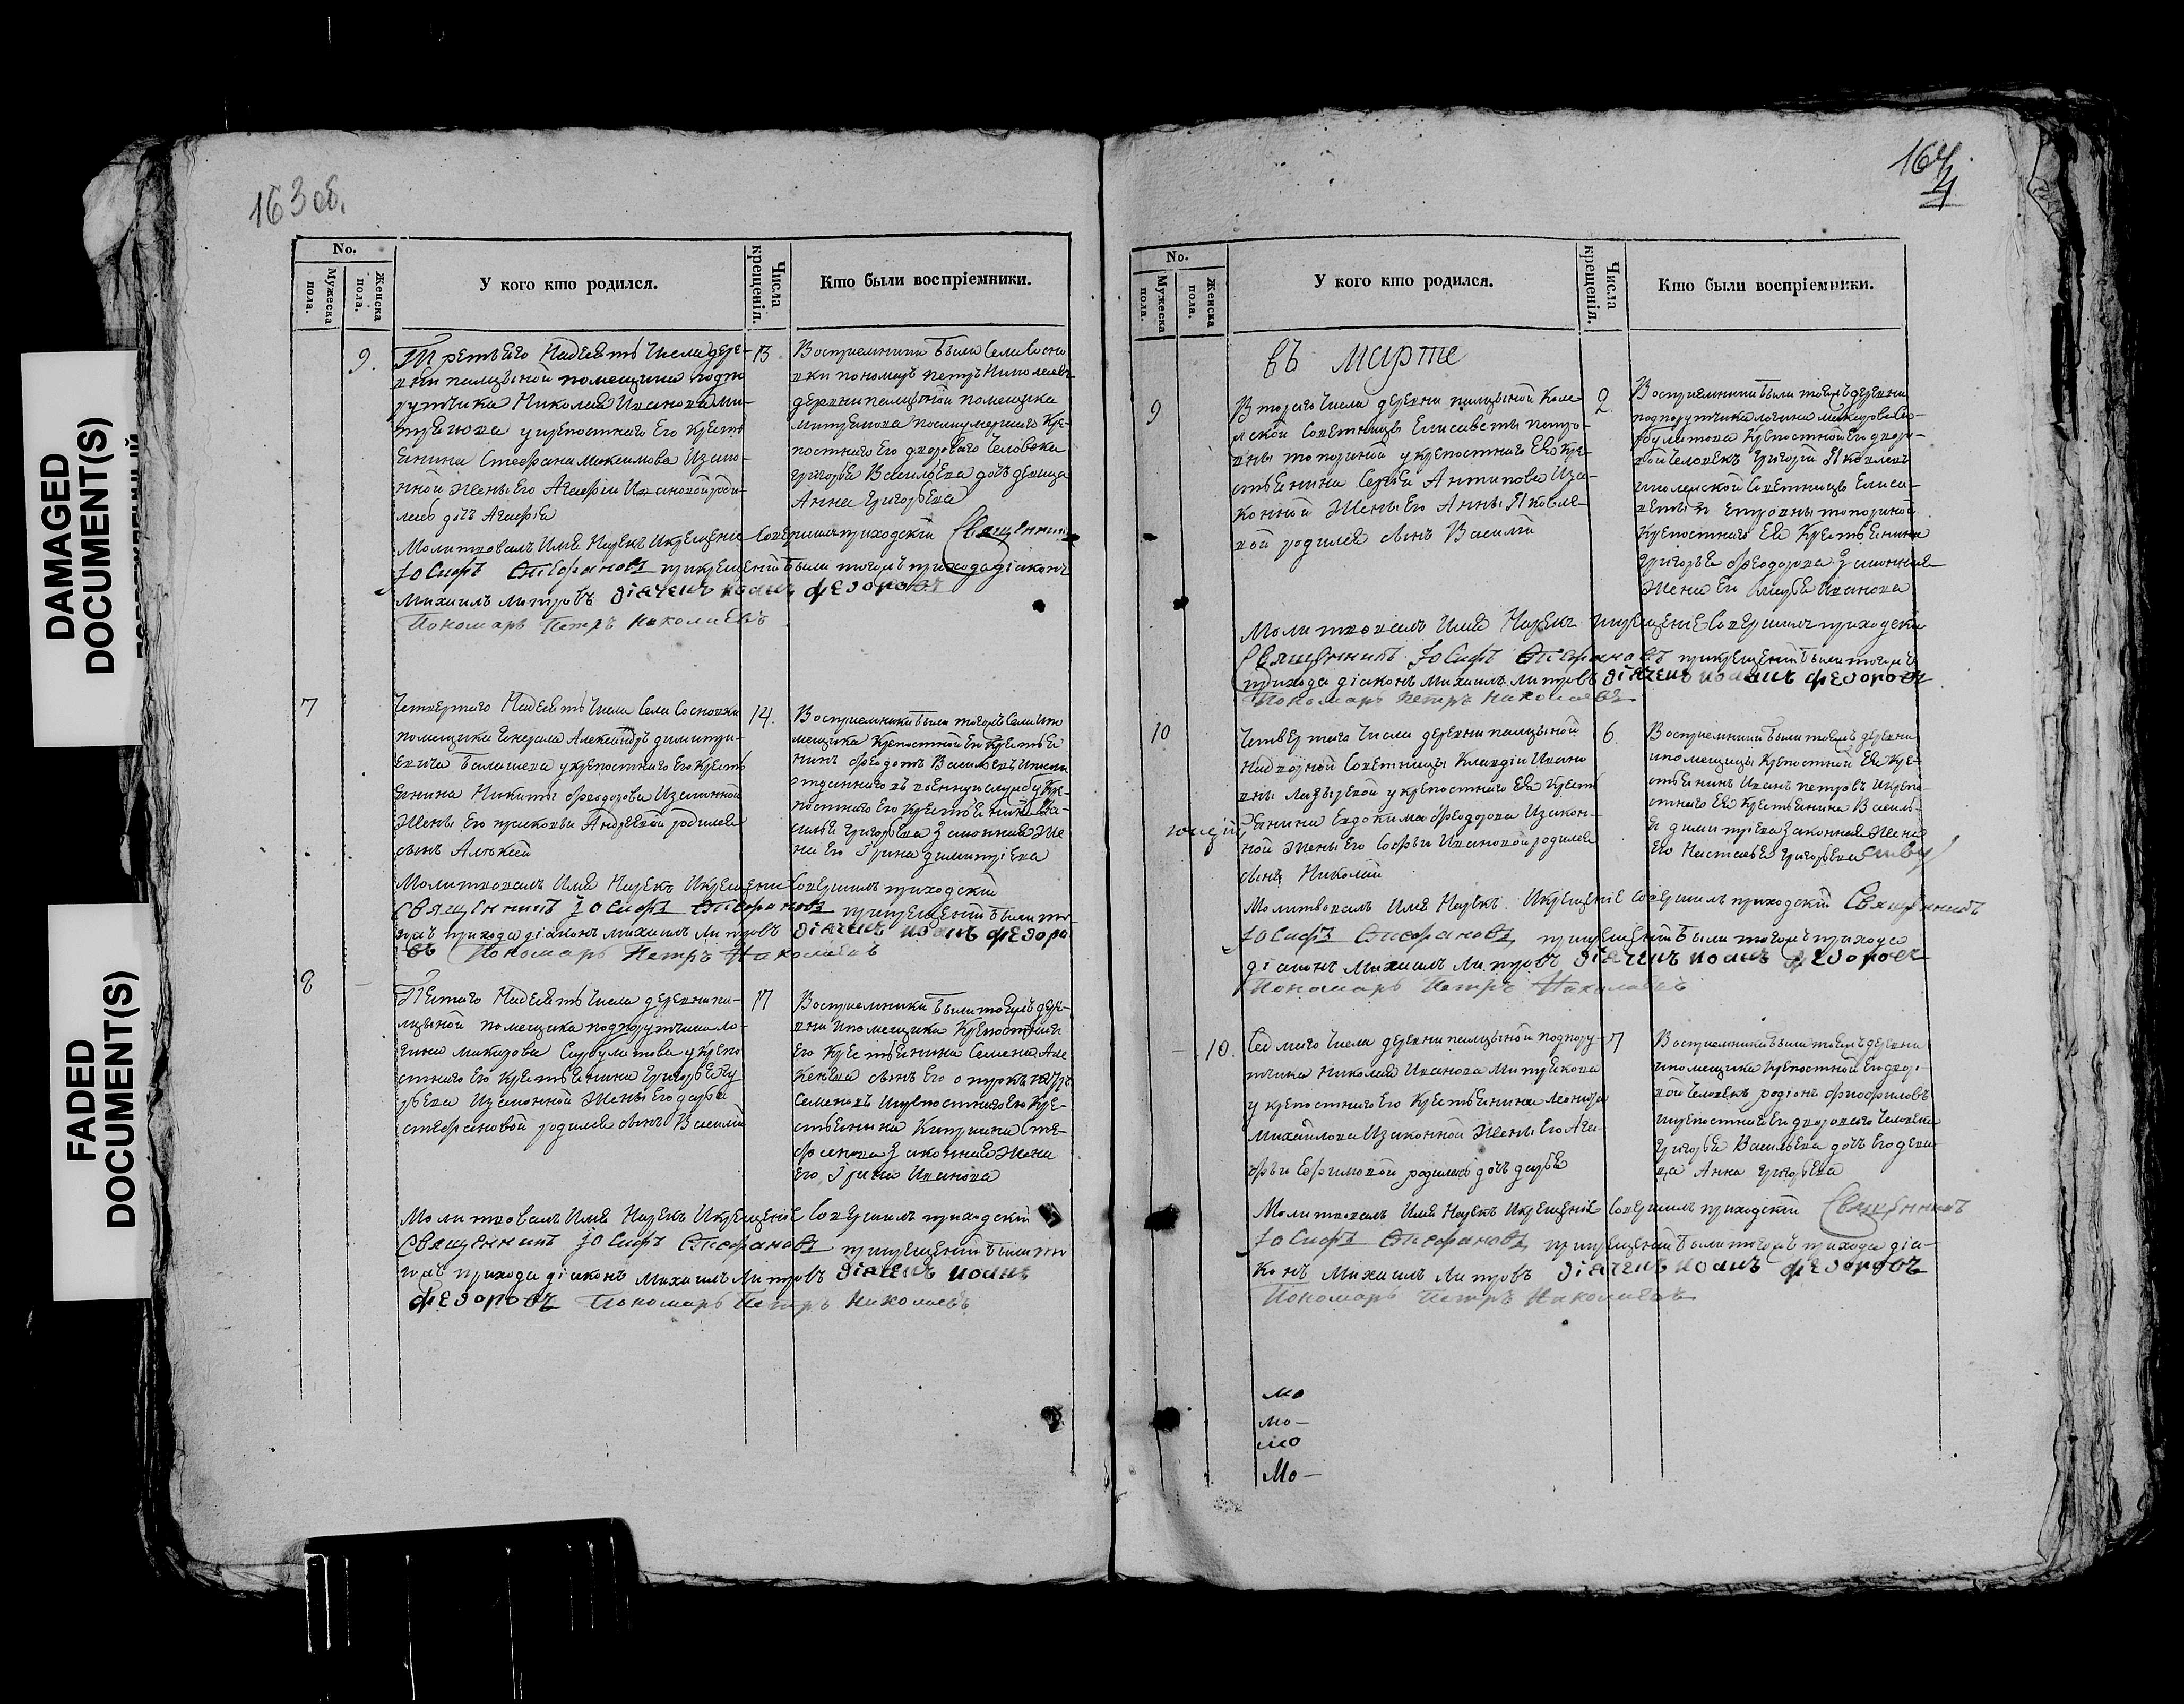 DAMAGED
DOCUMENT(S)
FADED
DOCUMENT(S)
163 об.
No.
Мужеска пола.
Женска пола.
У кого кто родился.
Числа крещенія.
Кто были воспріемники.
9.
Третьего Надесять Числа дере-
вни палцыной помещика подпо
рутчика Николая Иванова Ми-
трикова укрепостнаго Его Кресть
янина Стефана Максимова Иззако-
нной Жены Его Агафіи Ивановой роди-
лась дочь Агафья
13
Восприемники были Села Сосно
вки пономарь петръ Николаевъ
деревни палцыной помещика
Митрикова Кре-
постнаго Его двороваго Человека
григорья Васильева дочь девица
Анна григорьева
Молитвовалъ Имя Нарекъ Икрещение Совершилъ приходскій Священникъ
Іосифъ Стефановъ прикрещеніи были тогожъ прихода діаконъ
Михаилъ Митровъ діячекъ иоанъ федоровъ
Пономарь Петръ Николаевъ
7
Четвертаго Надесять Числа Села Сосновки
помещика Генерала Александръ димитри-
евича Балашева укрепостнаго Его Кресть
янина Никиты Феодорова Иззаконной
Жены Его прасковьи Андреевой родился
сынъ Алексей
14.
Восприемники были тогожъ Села ипо
мещика Крепостной Его Крестья
нинъ Феодотъ Васильевъ
отданнаго въ военную службу Кре-
постнаго Его Крестьянина Ва-
силья григорьева законная Же
на Его Ирина димитріева
Молитвовалъ Имя Нарекъ Икрещение Совершилъ приходскій
Священникъ Іосифъ Стефановъ прикрещеніи были то
гожъ прихода діаконъ Михаилъ Митровъ діячекъ иоанъ федоро
въ Пономарь Петръ Николаевъ
8
Пятаго Надесять Числа деревни па-
лцыной помещика подпорутчика ло-
гина макарова Сарбулатова укрепо
стнаго Его Крестьянина григорья гу
рьева Иззаконной Жены Его дарьи
стефановой родился сынъ Василій
17
Восприемники были тоежъ дере-
вни ипомещика Крепостнаго
Его Крестьянина Семена Але
ксеева сынъ Его отрокъ петръ
Семеновъ икрепостнаго Его Кре-
стьянина Киприяна Сте-
фанова законная Жена
Его Ирина Иванова
Молитвовалъ Имя Нарекъ Икрещеніе Совершилъ приходскій
Священникъ Іосифъ Стефановъ прикрещеніи были то
гожъ прихода діаконъ Михаилъ Митровъ діячекъ иоанъ
федоровъ Пономарь Петръ Николаевъ
164
4
No.
Мужеска пола.
Женска пола.
У кого кто родился.
Числа крещенія.
Кто были воспріемники.
въ марте
9
Втораго Числа деревни палцыной Коле
жской Советницы Елисаветы петро-
вны топориной укрепостнаго Ея Кре-
стьянина Сергея Антипова Изза-
конной Жены Его Анны Яковле-
вой родился сынъ Василій
2
Восприемники были тоежъ деревни
подпорутчика логина макарова Са-
рбулатова Крепостной Его дворо-
вой Человекъ григорій Яковлевъ
иколежской Советницы Елиса-
веты Петровны топориной
Крепостнаго Ея Крестьянина
григорья Феодорова законная
Жена Его Марья Иванова
Молитвовалъ Имя Нарекъ икрещеніе Совершилъ приходски
Священникъ Іосифъ Стефановъ прикрещеніи были тогожъ
прихода діаконъ Михаилъ Митровъ діячекъ иоанъ федоровъ
Пономарь Петръ Николаевъ
10
Четвертаго Числа деревни палцыной
Надворной Советницы Клавдіи Ивано
вны укрепостнаго Ея Кресть
янина Евдокима Феодорова Иззакон-
ной Жены Его Софьи Ивановой родился
сынъ Николай
6.
Восприемники были тоежъ деревни
ипомещицы Крепостной Ея Кре-
стьянинъ Иванъ петровъ икрепо
стнаго Ея Крестьянина Василь-
я димитріева законная Жена
Его Настасья григорьева
Молитвовалъ Имя Нарекъ Икрещеніе совершилъ приходскій Священникъ
Іосифъ Стефановъ прикрещеніи были тогожъ прихода
діаконъ Михаилъ Митровъ діячекъ иоанъ федоровъ
Пономарь Петръ Николаевъ
10.
Седмаго Числа деревни палцыной подпору-
тчика Николая Иванова Митрикова
укрепостнаго Его Крестьянина леонтья
Михайлова Иззаконной Жены Его Ага-
фьи Ефимовой родилась дочь дарья
7
Восприемники были тоежъ деревни
ипомещика Крепостной Его дворо-
вой Человекъ родіонъ Феофиловъ
икрепостнаго Его двороваго Человека
григорья Васильева дочь Его деви
ца Анна григорьева
Молитвовалъ Имя Нарекъ Икрещеніе Совершилъ приходскій Священникъ
Іосифъ Стефановъ прикрещеніи были тогожъ прихода діа-
конъ Михаилъ Митровъ діячекъ иоанъ федоровъ
Пономарь Петръ Николаевъ
мо
мо-
мо
Мо-